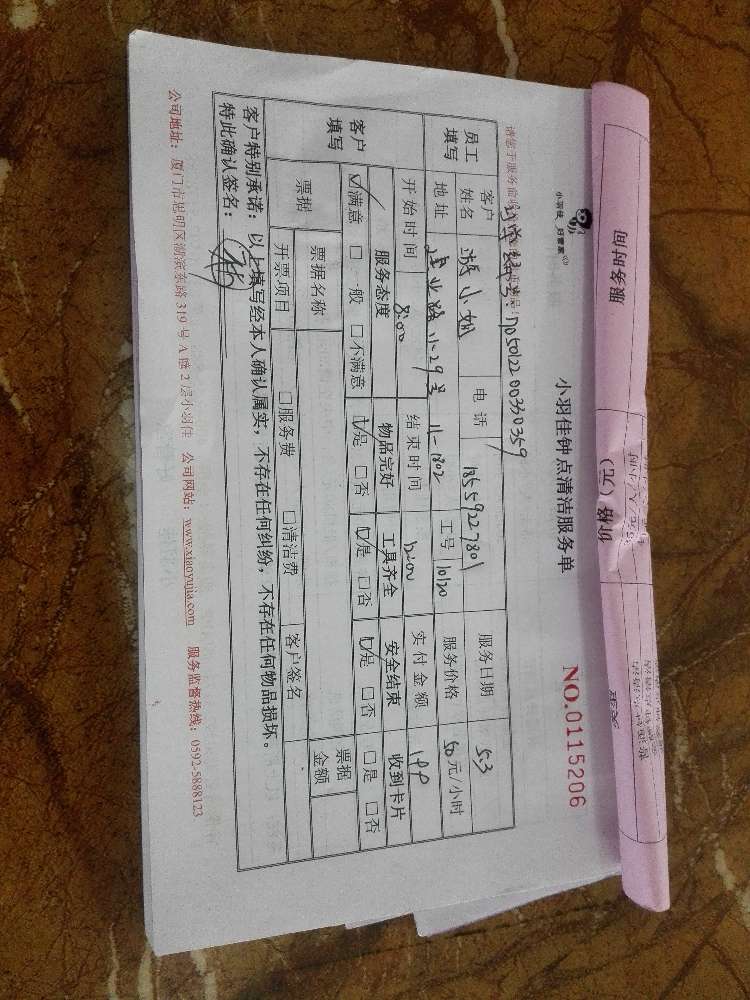 小羽佳 好管家
小羽佳钟点清洁服务单
NO.0115206
D05012200330359
员工填写
客户姓名 游小姐 电话 18559227801 服务日期 5.3
地址 11-29号 11-1802 工号 10120 服务价格 50元/小时
开始时间 8:00 结束时间 12:00 实付金额 199
客户填写
服务态度 物品完好 工具齐全 安全结束 收到卡片
☑满意 □一般 □不满意 ☑是 □否 ☑是 □否 ☑是 □否 □是 □否
票据 票据名称 票据金额
开票项目 □服务费 □清洁费 客户签名
客户特别承诺：以上填写经本人确认属实，不存在任何纠纷，不存在任何物品损坏。
特此确认签名：
公司地址：厦门市思明区湖滨东路319号A幢2层小羽佳 公司网站：www.xiaoyujia.com 服务监督热线：0592-5888123
服务时间
价格（元）